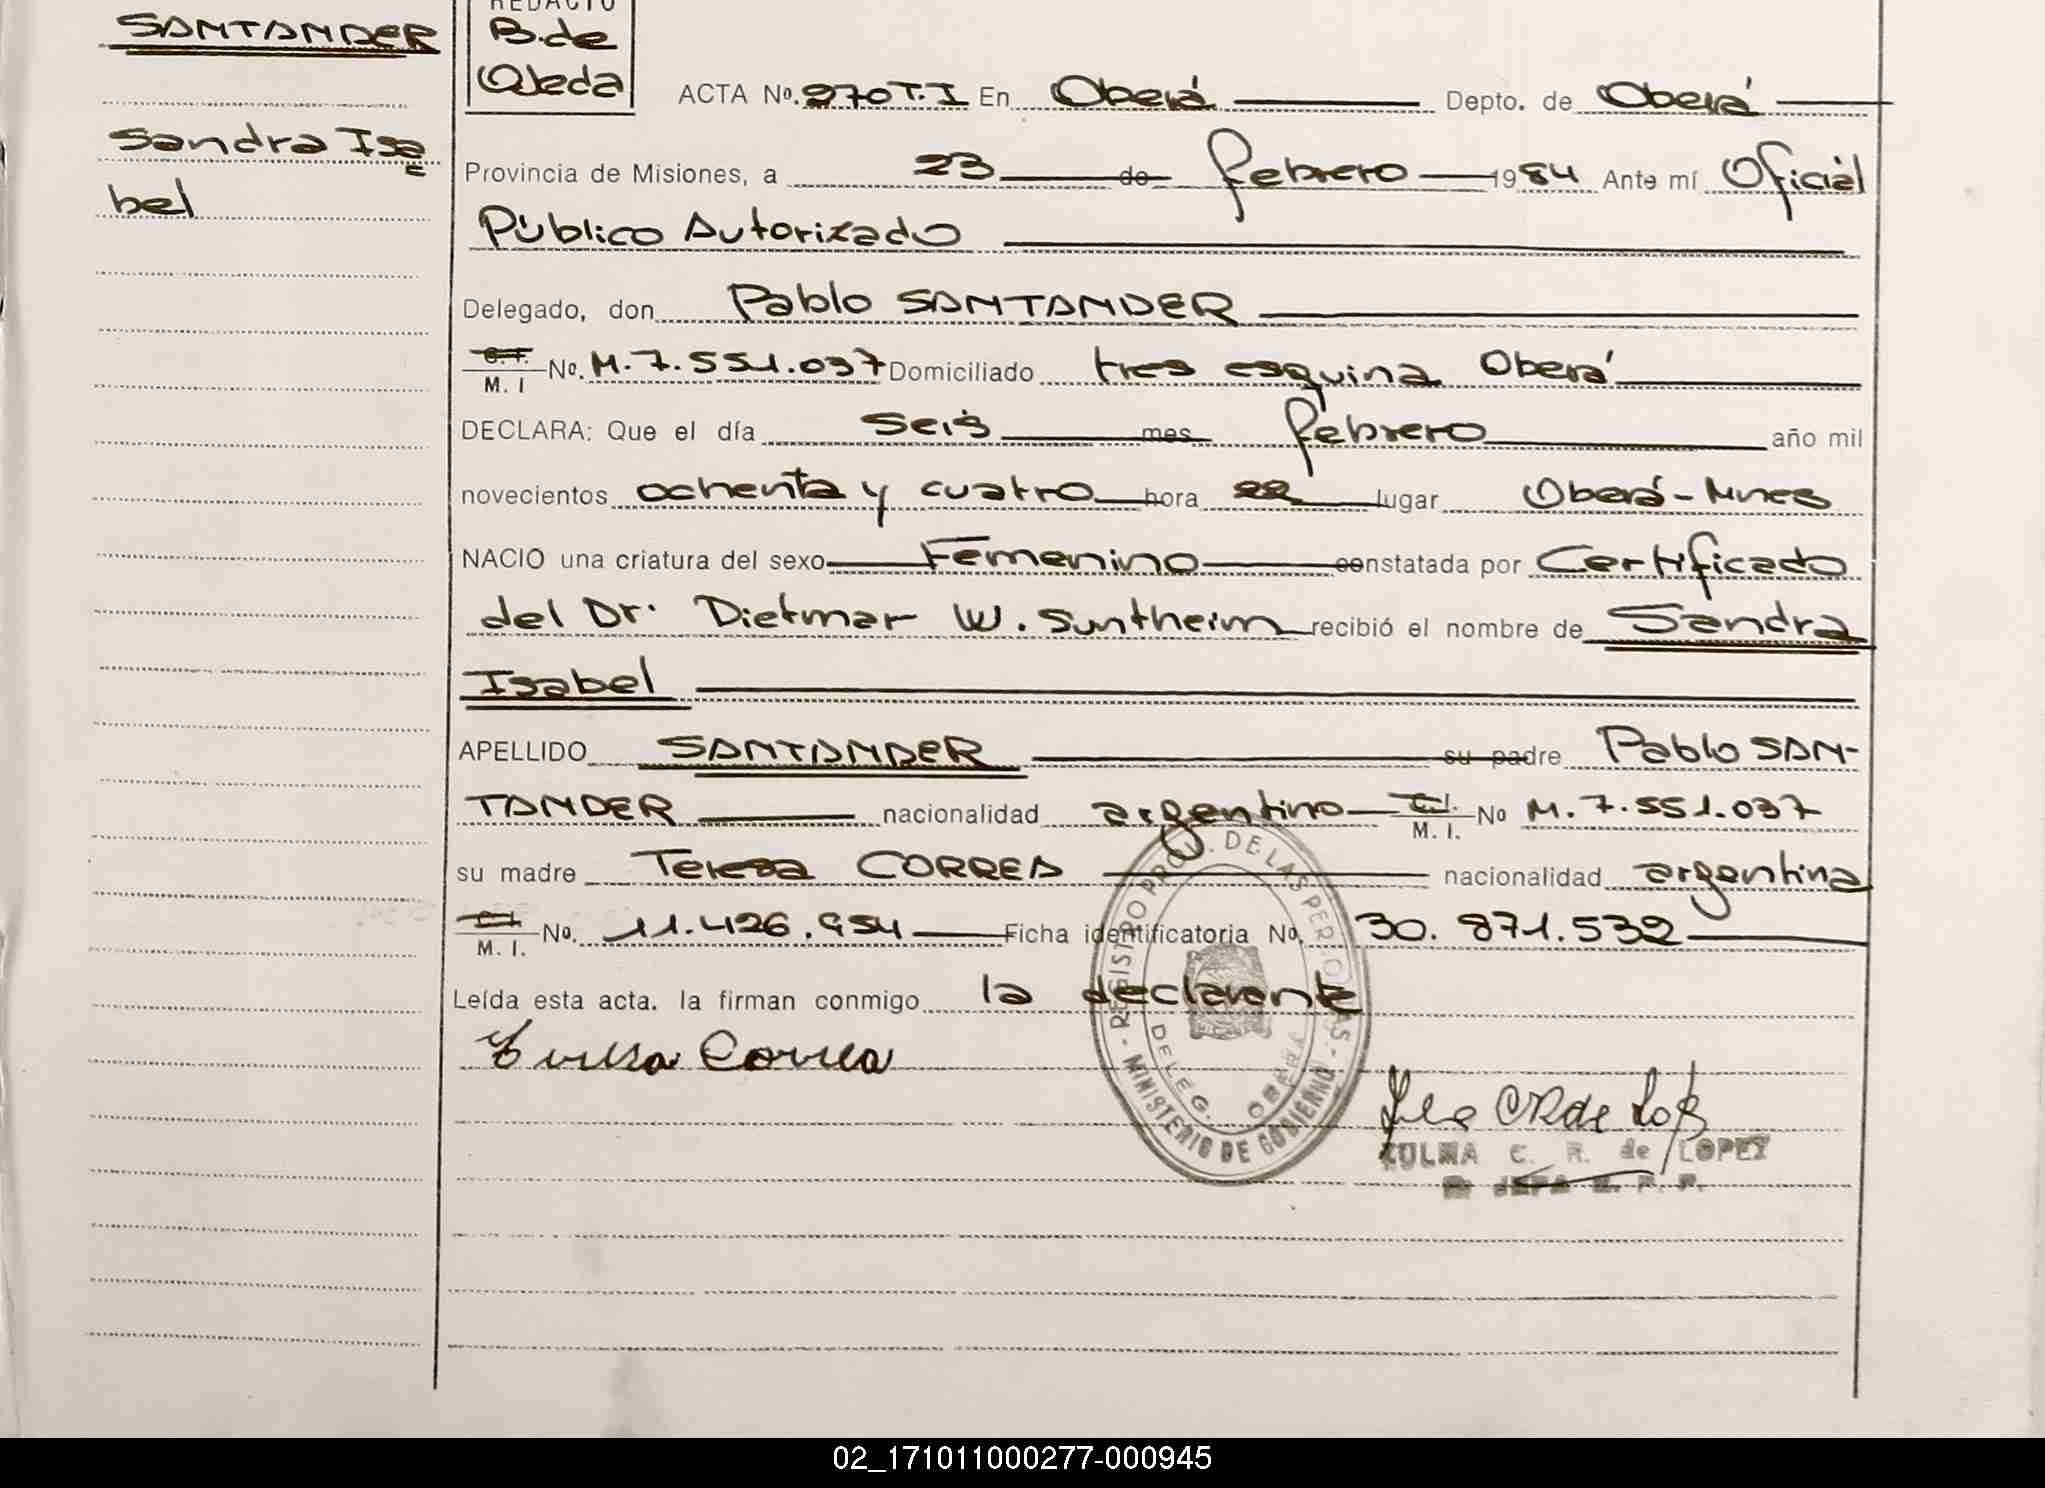 SANTANDER
Sandra Isa
bel
REDACTO
B. de
Ojeda
ACTA No. 270 T.I En Oberá Depto. de Oberá
Provincia de Misiones, a 23 de febrero 1984 Ante mí Oficial
Público Autorizado
Delegado, don Pablo SANTANDER
C.I. M. I No. M. 7.551.037 Domiciliado tres esquina Oberá
DECLARA: Que el día Seis mes febrero año mil
novecientos ochenta y cuatro hora 22 lugar Oberá-Mnes
NACIO una criatura del sexo Femenino constatada por Certificado
del Dr. Dietmar W. Suntheim recibió el nombre de Sandra
Isabel
APELLIDO SANTANDER su padre Pablo SAN-
TANDER nacionalidad argentino C.I. M. I. No M. 7.551.037
su madre Teresa CORREA nacionalidad argentina
C.I. M. I. No. 11.426.954 Ficha identificatoria No. 30.871.532
Leída esta acta. la firman conmigo la declarante
Teresa Correa
- REGISTRO PROV. DE LAS PERSONAS - MINISTERIO DE GOBIERNO
DELEG. OBERA
ZULMA C. R. de LOPEZ
JEFA
02_171011000277-000945